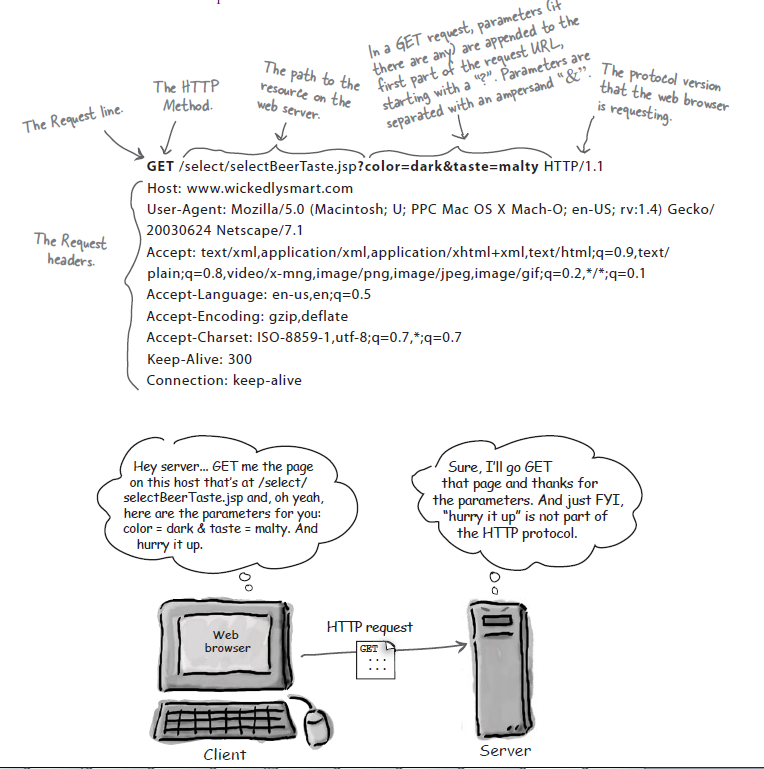 In a GET request, parameters (if
there are any) are appended to the
first part of the request URL,
starting with a "?". Parameters are
separated with an ampersand "&".
The path to the
resource on the
web server.
The HTTP
Method.
The protocol version
that the web browser
is requesting.
The Request line.
GET /select/selectBeerTaste.jsp?color=dark&taste=malty HTTP/1.1
Host: www.wickedlysmart.com
User-Agent: Mozilla/5.0 (Macintosh; U; PPC Mac OS X Mach-O; en-US; rv:1.4) Gecko/
20030624 Netscape/7.1
The Request
headers.
Accept: text/xml,application/xml,application/xhtml+xml,text/html;q=0.9,text/
plain;q=0.8,video/x-mng,image/png,image/jpeg,image/gif;q=0.2,*/*;q=0.1
Accept-Language: en-us,en;q=0.5
Accept-Encoding: gzip,deflate
Accept-Charset: ISO-8859-1,utf-8;q=0.7,*;q=0.7
Keep-Alive: 300
Connection: keep-alive
Hey server... GET me the page
on this host that's at /select/
selectBeerTaste.jsp and, oh yeah,
here are the parameters for you:
color = dark & taste = malty. And
hurry it up.
Sure, I'll go GET
that page and thanks for
the parameters. And just FYI,
"hurry it up" is not part of
the HTTP protocol.
Web
browser
HTTP request
GET
...
...
Client
Server